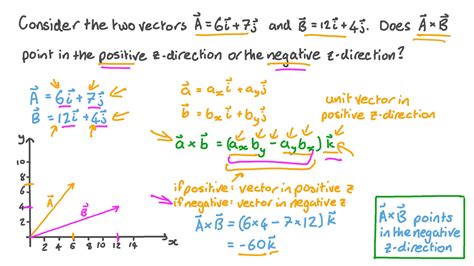 Consider the two vectors A⃗ = 6i⃗ + 7j⃗ and B⃗ = 12i⃗ + 4j⃗. Does A⃗×B⃗
point in the positive z-direction or the negative z-direction?
A⃗ = 6i⃗ + 7j⃗
B⃗ = 12i⃗ + 4j⃗
a⃗ = aₓi⃗ + a_yj⃗
b⃗ = bₓi⃗ + b_yj⃗
unit vector in
positive z-direction
a⃗ × b⃗ = (aₓb_y − a_ybₓ)k⃗
if positive: vector in positive z
if negative: vector in negative z
A⃗×B⃗ = (6×4 − 7×12)k⃗
= −60k⃗
A⃗×B⃗ points
in the negative
z-direction
y
10
8
4
2
0
2 4 6 8 10 12 14
x
A⃗
B⃗